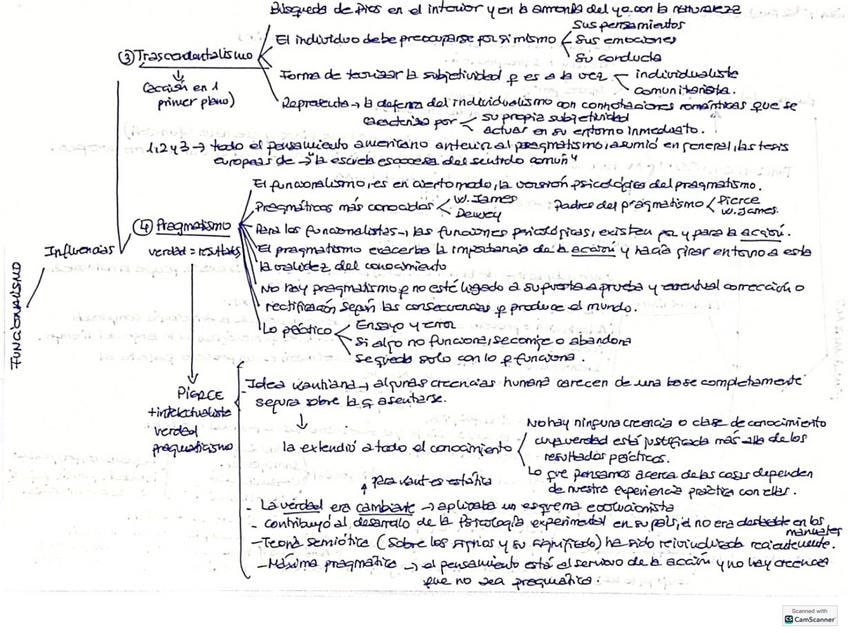 Búsqueda de Dios en el interior y en la armonía del yo con la naturaleza
③ Trascendentalismo
(acción en 1er
primer plano)
El individuo debe preocuparse por si mismo
Sus pensamientos
Sus emociones
Su conducta
Forma de teorizar la subjetividad q es a la vez
individualista
comunitarista.
Representa → la defensa del individualismo con connotaciones románticas que se
caracteriza por
su propia subjetividad
actuar en su entorno inmediato.
1, 2 y 3 → todo el pensamiento americano anterior al pragmatismo, asumió en general, las tesis
europeas de → "la escuela escocesa del sentido común"
FUNCIONALISMO
Influencias
④ Pragmatismo
verdad = resultados
El funcionalismo, es en cierto modo, la versión psicológica del pragmatismo.
Pragmáticos más conocidos
W. James
Dewey
Padres del pragmatismo
Pierce
W. James.
Para los funcionalistas → las funciones psicológicas, existen por y para la acción.
El pragmatismo exacerba la importancia de la acción y hacía girar entorno a esta
la validez del conocimiento
No hay pragmatismo q no esté ligado a su puesta a prueba y eventual corrección o
rectificación según las consecuencias q produce el mundo.
Lo práctico
Ensayo y error
Si algo no funciona, se corrige o abandona
Se queda solo con lo q funciona.
PIERCE
+ intelectualista
verdad
pragmaticismo
- Idea kantiana → algunas creencias humana carecen de una base completamente
segura sobre la q asentarse.
la extendió a todo el conocimiento
No hay ninguna creencia o clase de conocimiento
cuya verdad está justificada más allá de los
resultados prácticos.
Lo que pensamos acerca de las cosas dependen
de nuestra experiencia práctica con ellas.
para kant es estática
- La verdad era cambiante → aplicaba un esquema evolucionista
- Contribuyó al desarrollo de la Psicología experimental en su país, no era en los
manuales
- Teoría semiótica (sobre los signos y su significado) ha sido reivindicada recientemente.
- Máxima pragmática → el pensamiento está al servicio de la acción y no hay creencia
que no sea pragmática.
Scanned with
CS CamScanner